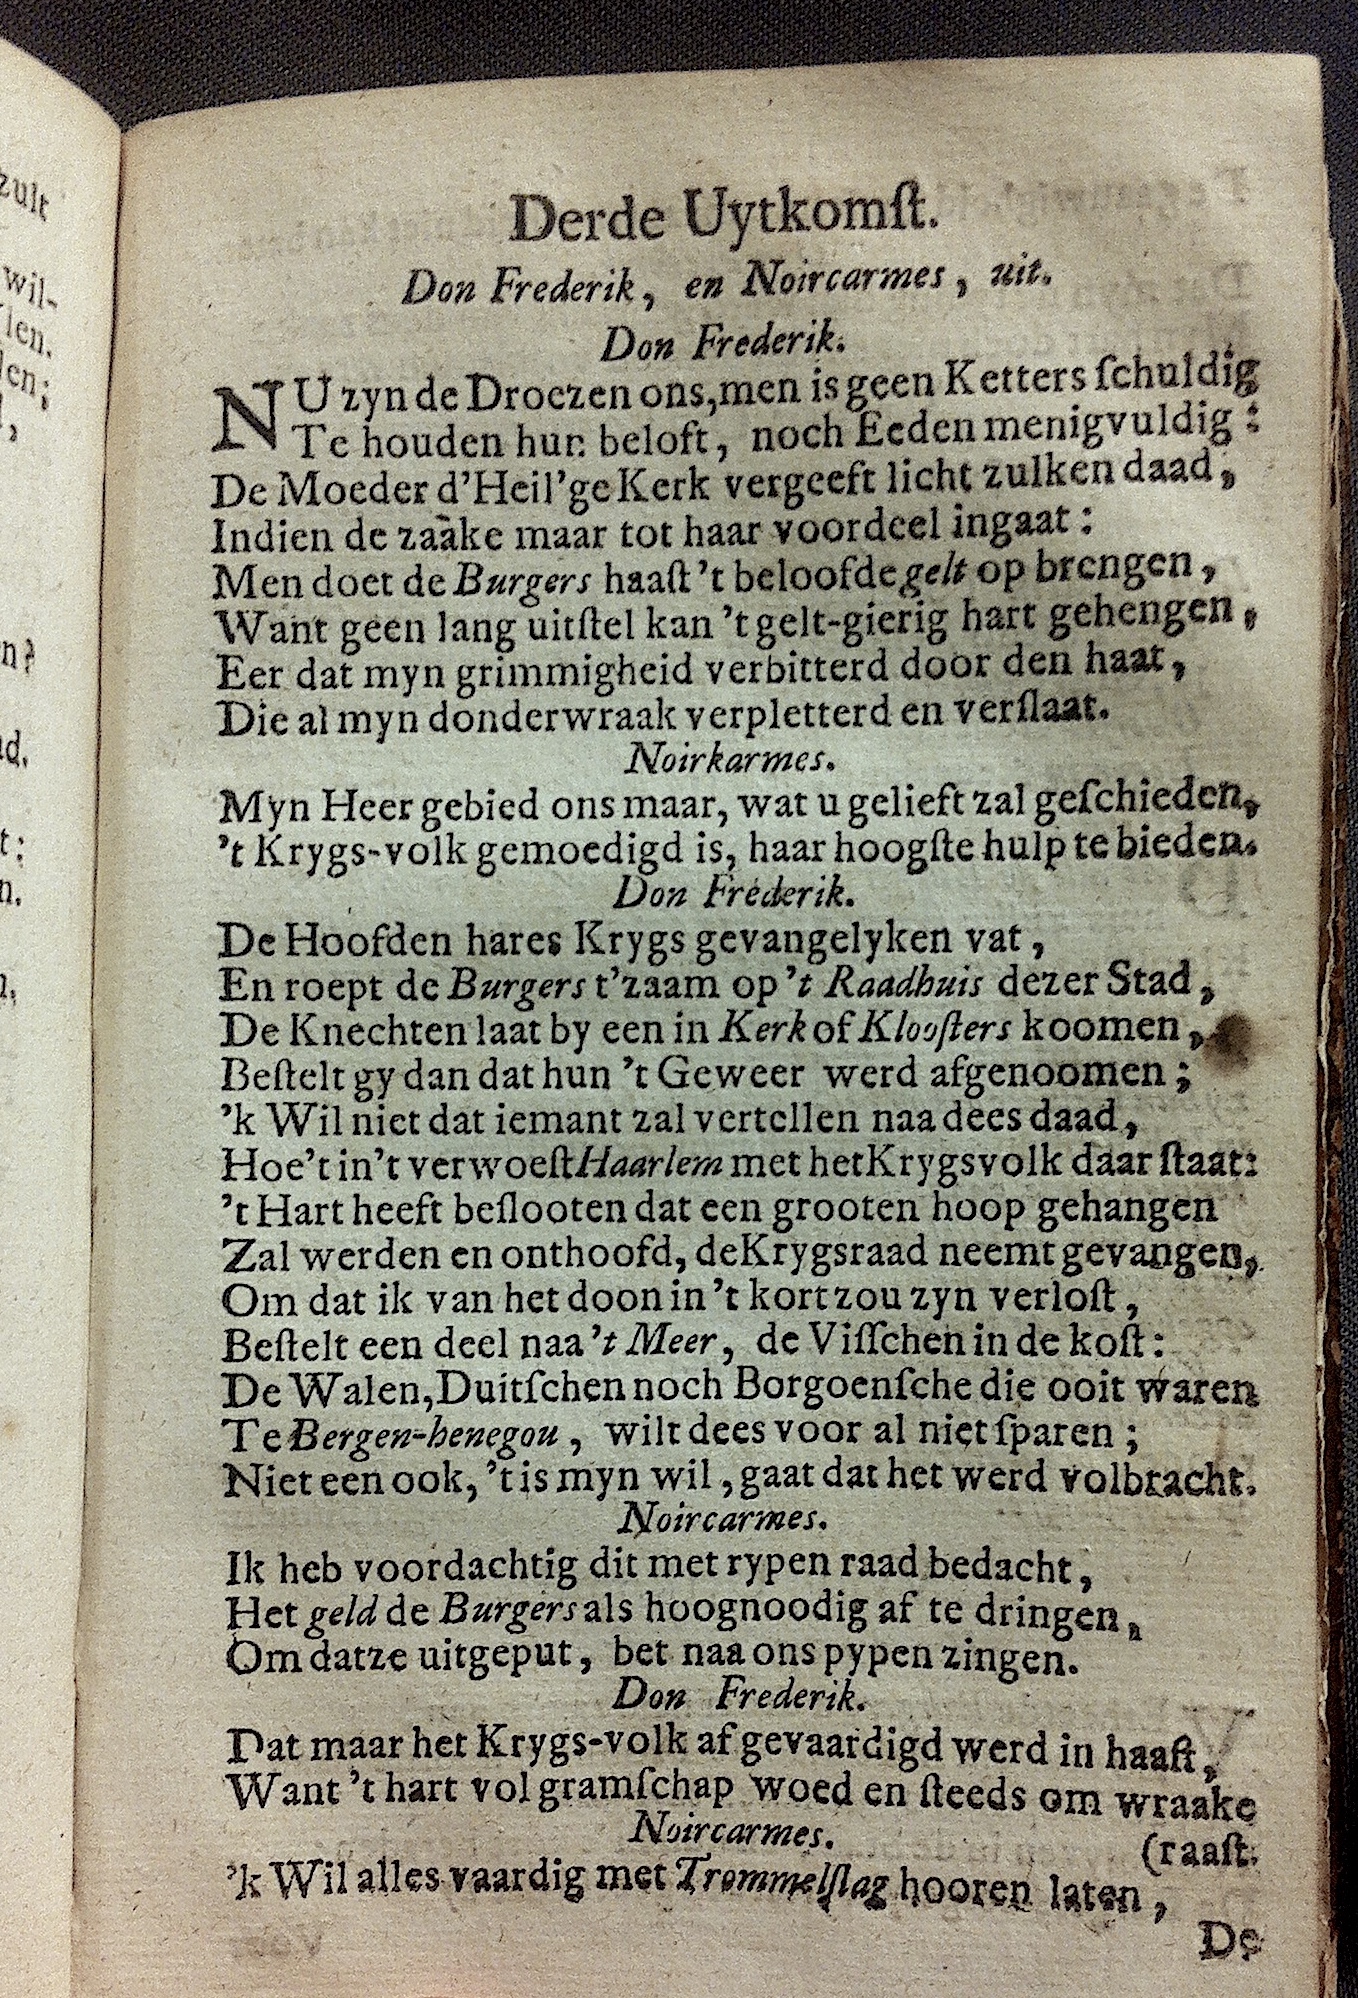 zult
wil-
n?
t:
n.
Derde Uytkomſt.
Don Frederik, en Noircarmes, uit.
Don Frederik.
NU zyn de Droezen ons, men is geen Ketters ſchuldig
Te houden hun beloft, noch Eeden menigvuldig:
De Moeder d'Heil'ge Kerk vergeeft licht zulken daad,
Indien de zaàke maar tot haar voordeel ingaat:
Men doet de Burgers haaſt 't beloofde gelt op brengen,
Want geen lang uitſtel kan 't gelt-gierig hart gehengen,
Eer dat myn grimmigheid verbitterd door den haat,
Die al myn donderwraak verpletterd en verſlaat.
Noirkarmes.
Myn Heer gebied ons maar, wat u gelieft zal geſchieden,
't Krygs-volk gemoedigd is, haar hoogſte hulp te bieden.
Don Frederik.
De Hoofden hares Krygs gevangelyken vat,
En roept de Burgers t'zaam op 't Raadhuis dezer Stad,
De Knechten laat by een in Kerk of Klooſters koomen,
Beſtelt gy dan dat hun 't Geweer werd afgenoomen;
'k Wil niet dat iemant zal vertellen naa dees daad,
Hoe't in't verwoeſt Haarlem met het Krygsvolk daar ſtaat:
't Hart heeft beſlooten dat een grooten hoop gehangen
Zal werden en onthoofd, de Krygsraad neemt gevangen,
Om dat ik van het doon in 't kort zou zyn verloſt,
Beſtelt een deel naa 't Meer, de Viſſchen in de koſt:
De Walen, Duitſchen noch Borgoenſche die ooit waren
Te Bergen-henegou, wilt dees voor al niet ſparen;
Niet een ook, 't is myn wil, gaat dat het werd volbracht.
Noircarmes.
Ik heb voordachtig dit met rypen raad bedacht,
Het geld de Burgers als hoognoodig af te dringen,
Om datze uitgeput, bet naa ons pypen zingen.
Don Frederik.
Dat maar het Krygs-volk af gevaardigd werd in haaſt,
Want 't hart vol gramſchap woed en ſteeds om wraake
(raaſt.
Noircarmes.
'k Wil alles vaardig met Trommelſlag hooren laten,
De